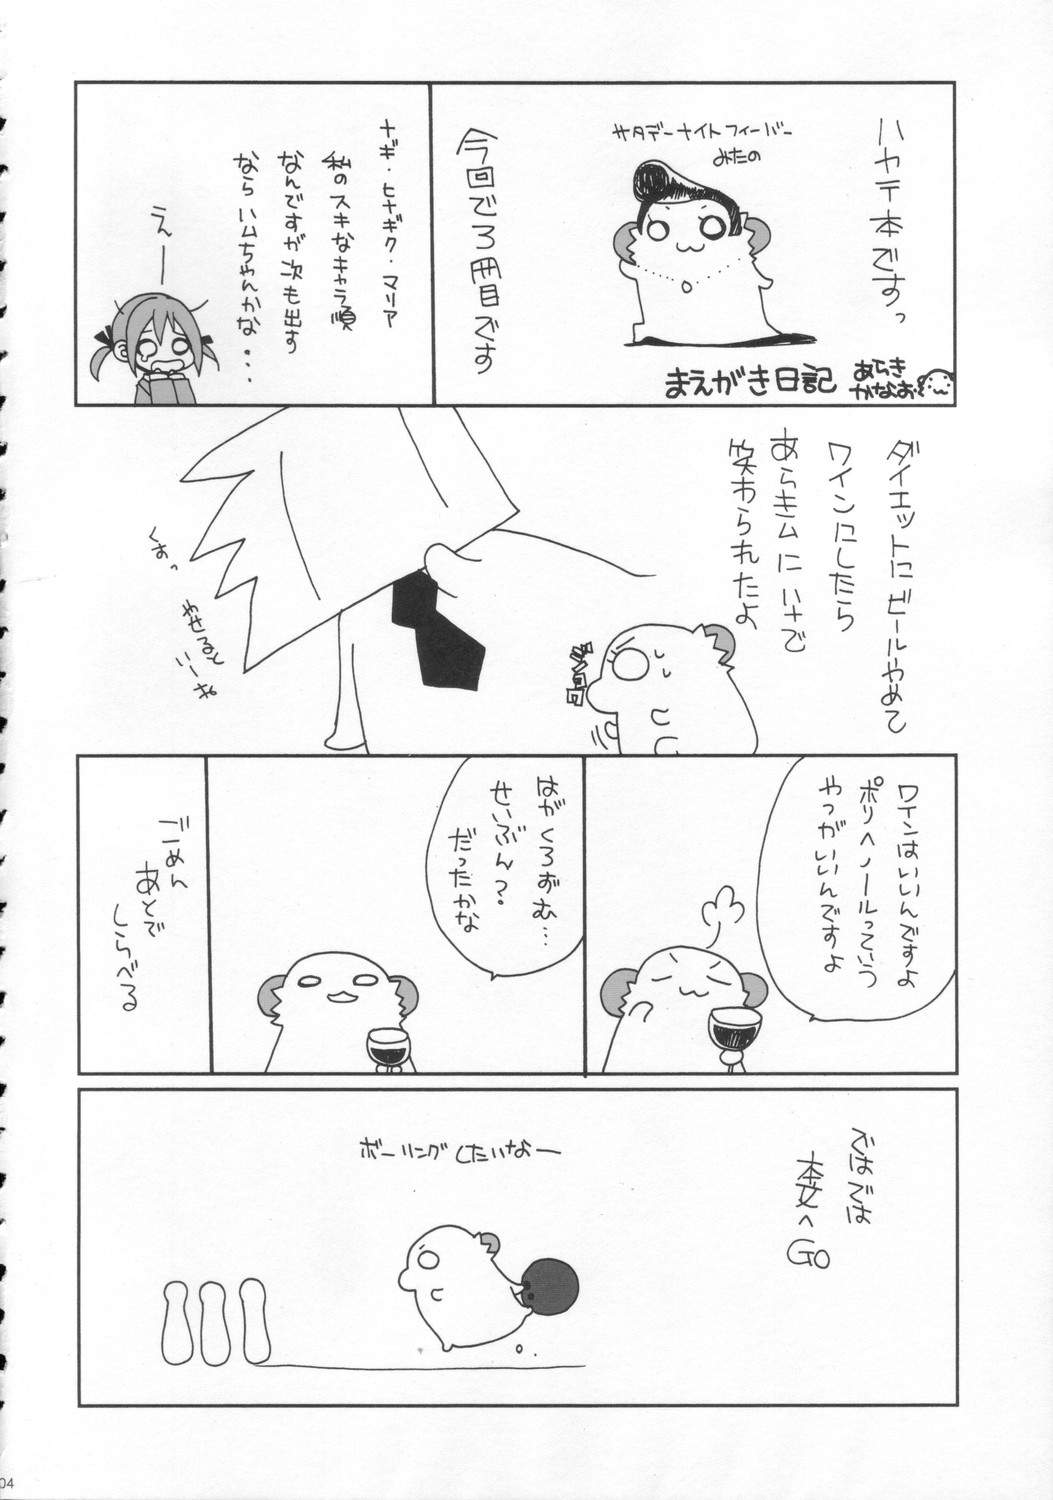 ハヤテ本ですっ
サタデーナイトフィーバー
みたの
今回で3冊目です
まえがき日記
あらき
かなお
ナギ・ヒナギク・マリア
私のスキなキャラ順
なんですが次も出す
なら ハムちゃんかな・・・
えー
ダイエットにビールやめて
ワインにしたら
あらきムにいさで
笑わられたよ
ジロ
くすっ
やせると
いーね
ワインはいいんですよ
ポリヘノールっていう
やつがいいんですよ
はがくろずむ…
せいぶん?
だったかな
ごめん
あとで
しらべる
ではでは
本文へ
GO
ボーリングしたいなー
04